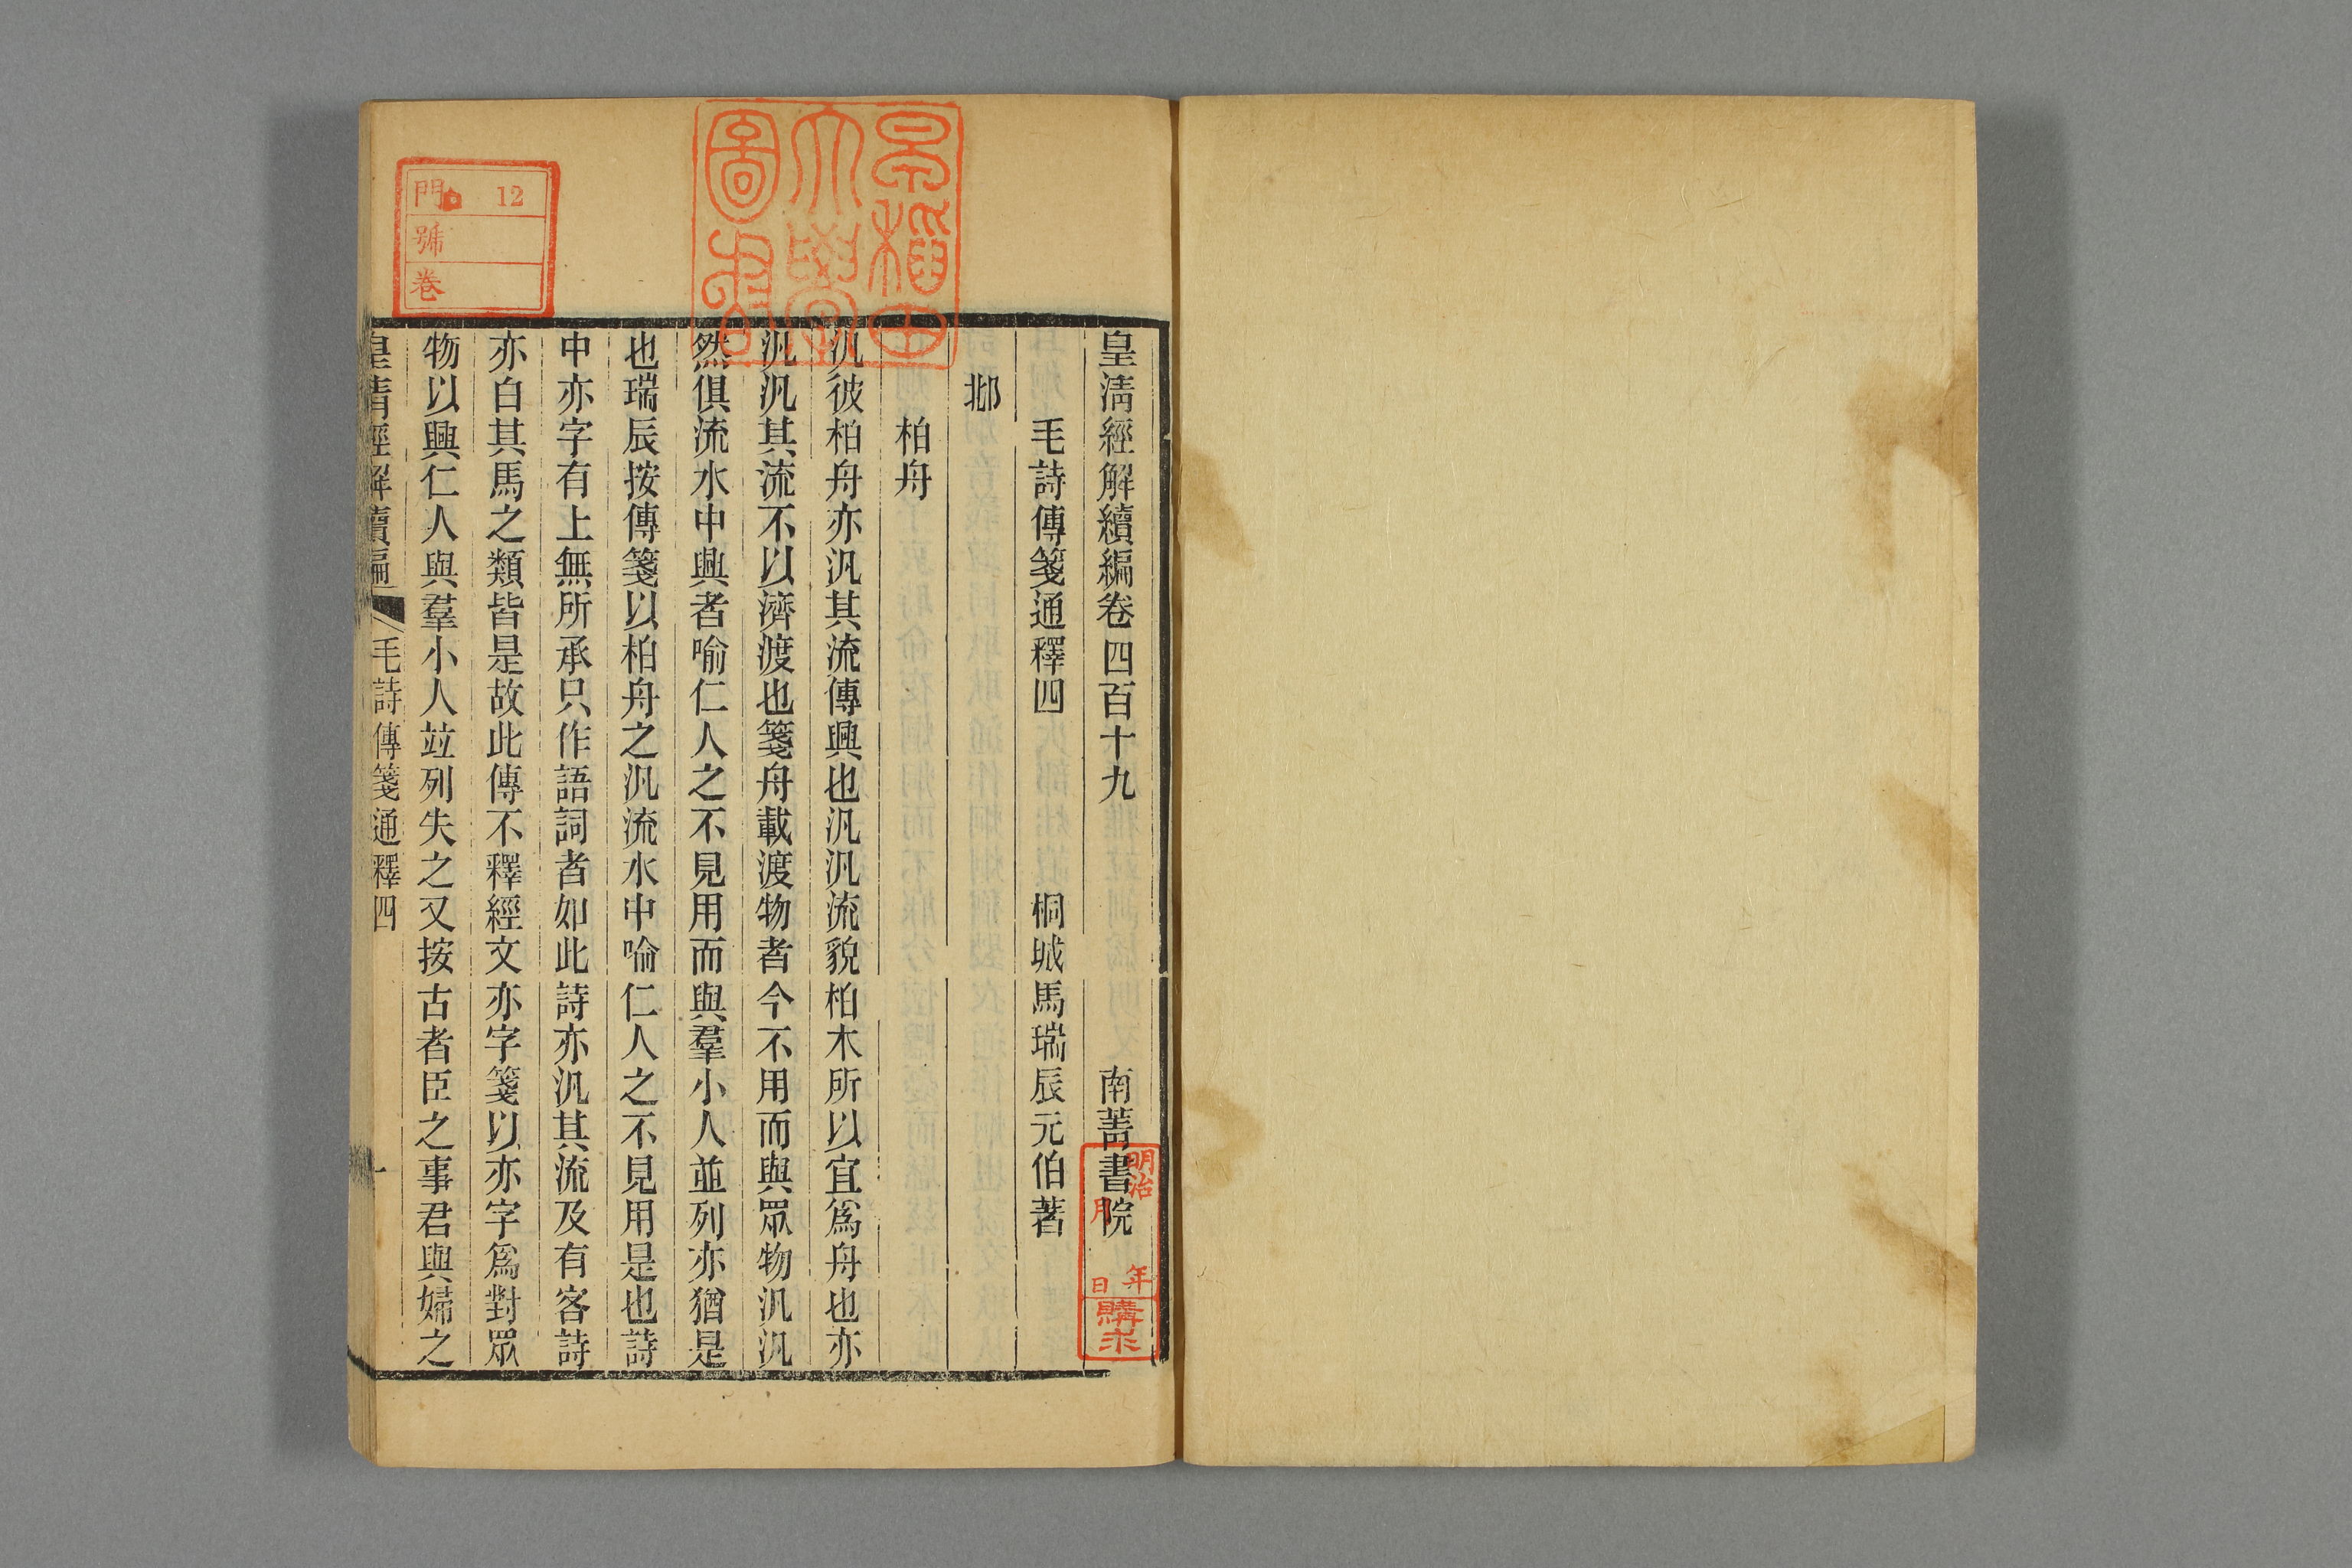 皇清經解續編卷四百十九 南菁書院
毛詩傳箋通釋四 桐城馬瑞辰元伯著
邶
柏舟
汎彼柏舟亦汎其流傳興也汎汎流貌柏木所以宜爲舟也亦
汎汎其流不以濟渡也箋舟載渡物者今不用而與眾物汎汎
然俱流水中興者喻仁人之不見用而與羣小人並列亦猶是
也瑞辰按傳箋以柏舟之汎流水中喻仁人之不見用是也詩
中亦字有上無所承只作語詞者如此詩亦汎其流及有客詩
亦白其馬之類皆是故此傳不釋經文亦字箋以亦字爲對眾
物以興仁人與羣小人竝列失之又按古者臣之事君與婦之
皇清經解續編 毛詩傳箋通釋四 一
早稻田
大學
圖書
門 12
號
卷
明治 年
月 日
購求